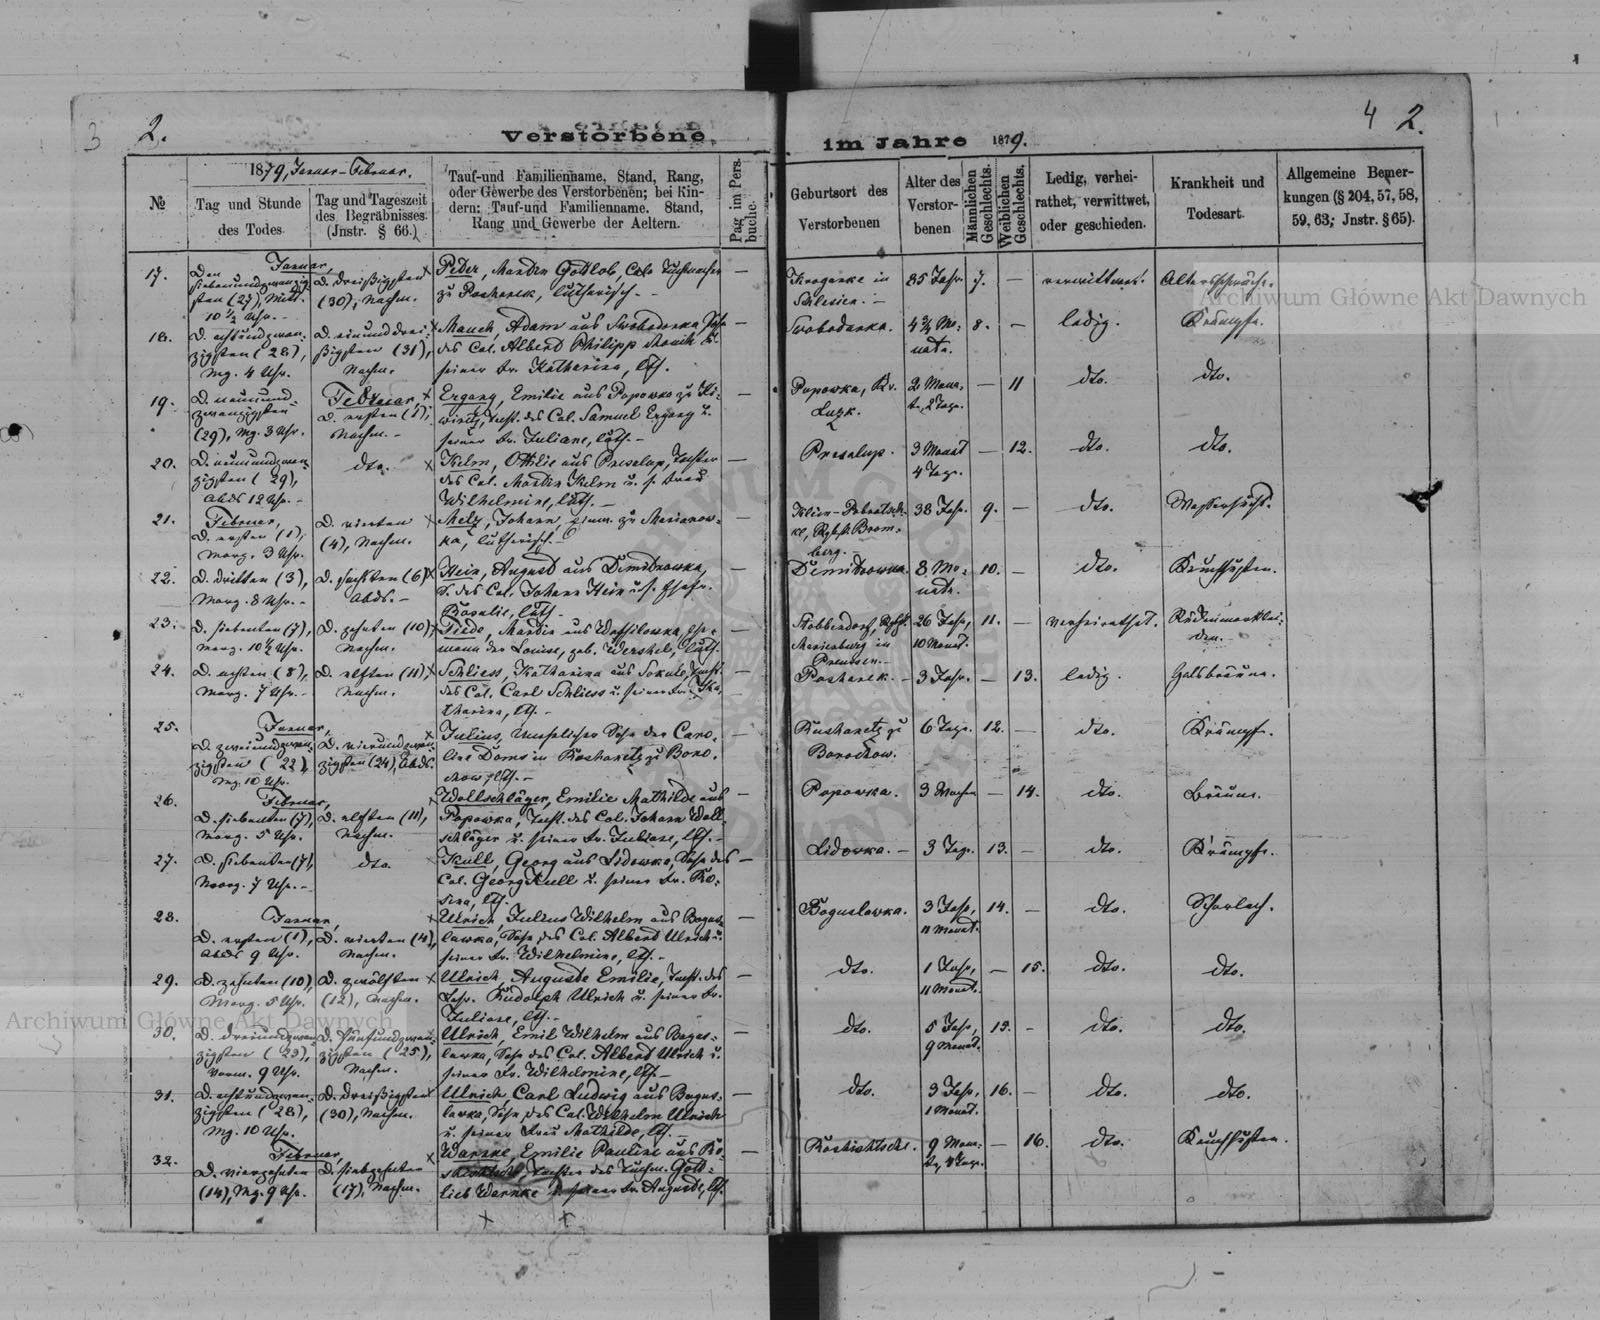 3 2.
Verstorbene
im Jahre 1879.
4 2.
№
1879, Januar-Februar.
Tag und Stunde
des Todes
Tag und Tageszeit
des Begräbnisses.
(Jnstr. § 66.)
Tauf-und Familienname, Stand, Rang,
oder Gewerbe des Verstorbenen; bei Kin-
dern: Tauf-und Familienname. Stand,
Rang und Gewerbe der Aeltern.
Pag im Pers.
buche.
Geburtsort des
Verstorbenen
Alter des
Verstor-
benen
Männlichen
Geschlechts.
Weiblichen
Geschlechts.
Ledig, verhei-
rathet, verwittwet,
oder geschieden.
Krankheit und
Todesart.
Allgemeine Bemer-
kungen (§ 204, 57, 58,
59, 63; Jnstr. § 65).
17.
Den Januar,
siebenundzwanzig-
sten (27), Mitt.
10 ½ Uhr. -
D. dreißigsten
(30), Nachm.
Peder, Martin Gottlob, Tuchmacher
zu Postarek, lutherisch. -
in
Schlesien. -
85 Jahr
7.
—
verwittwet.
Altersschwäche.
18.
D. achtundzwan-
zigsten (28),
Mg. 4 Uhr.
D. einunddrei-
ßigsten (31),
Nachm.
Mauch, Adam aus Swobodarka Sohn
des Col. Albert Philipp Mauch u.
seiner Fr. Katharina, lth.
Swobodarka.
4 ¾ Mo-
nate.
8.
—
ledig.
Krämpfe.
19.
D. neunund-
zwanzigsten
(29), Mg. 3 Uhr.
Februar,
D. ersten (1),
Nachm. -
Ergang, Emilie aus Popowka zu Ki-
wirtz, Tocht. des Col. Samuel Ergang u.
seiner Fr. Juliane, luth. -
Popowka, Kr.
Luzk.
2 Mona-
te, 2 Tage.
—
11
dto.
dto.
20.
D. neunundzwan-
zigsten (29),
Abds 12 Uhr. -
dto.
Kelm, Ottilie aus Preselup, Tochter
des Col. Martin Kelm u. s. Frau
Wilhelmine, luth. -
Preselup.
3 Monat
4 Tage.
—
12.
dto.
dto.
21.
Februar,
D. ersten (1),
Morg. 3 Uhr.
D. vierten
(4), Nachm.
Melz, Johann, zu Marianow-
ka, lutherisch. -
Brom-
berg. -
38 Jahr.
9.
—
dto.
Wassersucht.
22.
D. dritten (3),
Morg. 8 Uhr. -
D. sechsten (6)
Abds. -
Hein, August aus Dimitrowka,
S. des Col. Johann Hein u. s. Ehefr.
Rosalie, luth. -
Dimitrowka.
8 Mo-
nate.
10.
—
dto.
Keuchhusten.
23.
D. siebenten (7),
Morg. 10 ½ Uhr.
D. zehnten (10),
Nachm.
Tiede, Martin aus Wassilowka, Ehe-
mann der Louise, geb. Werschel, luth.
Marienburg in
Preussen. -
26 Jahr,
10 Monat.
11.
—
verheirathet.
Rückenmarklei-
den.
24.
D. achten (8),
Morg. 7 Uhr. -
D. elften (11),
Nachm.
Schliess, Katharina aus Sokule, Tocht.
des Col. Carl Schliess u. seiner Fr. Ka-
tharina, lth. -
Postarek. -
3 Jahr.
—
13.
ledig.
Halsbräune.
25.
Januar,
D. zweiundzwan-
zigsten (22),
Mg. 10 Uhr.
D. vierundzwan-
zigsten (24), Abds.
Julius, Unehelicher Sohn der Caro-
line Doms in Roshanetz zu Boro-
chow, lth. -
Roshanetz zu
Borochow.
6 Tage.
12.
—
dto.
Krämpfe.
26.
Februar,
D. siebenten (7),
Morg. 5 Uhr.
D. elften (11),
Nachm.
Wollschläger, Emilie Mathilde aus
Popowka, Tocht. des Col. Johann Woll-
schläger u. seiner Fr. Juliane, lth. -
Popowka.
3 Wochen
—
14.
dto.
Bräune.
27.
D. siebenten (7),
Morg. 7 Uhr. -
dto.
Kull, Georg aus Lidowka, Sohn des
Col. Georg Kull u. seiner Fr. Ro-
sina, lth. -
Lidowka. -
3 Tage.
13.
—
dto.
Krämpfe.
28.
Januar,
D. ersten (1),
Abds 9 Uhr.
D. vierten (4),
Nachm.
Ulrich, Julius Wilhelm aus Bogus-
lawka, Sohn des Col. Albert Ulrich u.
seiner Fr. Wilhelmine, lth. -
Boguslawka.
3 Jahr,
11 Monat.
14.
—
dto.
Scharlach.
29.
D. zehnten (10),
Morg. 5 Uhr.
D. zwölften
(12), Nachm.
Ulrich, Auguste Emilie, Tocht. des
Rudolph Ulrich u. seiner Fr.
Juliane, lth. -
dto.
1 Jahr,
11 Monat.
—
15.
dto.
dto.
30.
D. dreiundzwan-
zigsten (23),
Vorm. 9 Uhr.
D. fünfundzwan-
zigsten (25),
Nachm.
Ulrich, Emil Wilhelm aus Bogus-
lawka, Sohn des Col. Albert Ulrich u.
seiner Fr. Wilhelmine, lth. -
dto.
5 Jahr,
9 Monat.
15.
—
dto.
dto.
31.
D. achtundzwan-
zigsten (28),
Mg. 10 Uhr.
D. dreißigsten
(30), Nachm.
Ulrich, Carl Ludwig aus Bogus-
lawka, Sohn des Col. Wilhelm Ulrich
u. seiner Frau Mathilde, lth. -
dto.
3 Jahr,
1 Monat.
16.
—
dto.
dto.
32.
Februar,
D. vierzehnten
(14), Mg. 9 Uhr.
D. siebzehnten
(17), Nachm.
Warnke, Emilie Pauline aus Ro-
Tochter des Tuchm. Gott-
lieb Warnke u. seiner Fr. Auguste, lth.
Roshischtsche.
9 Mona-
te, 4 Tage.
—
16.
dto.
Keuchhusten.
Archiwum Główne Akt Dawnych
Archiwum Główne Akt Dawnych